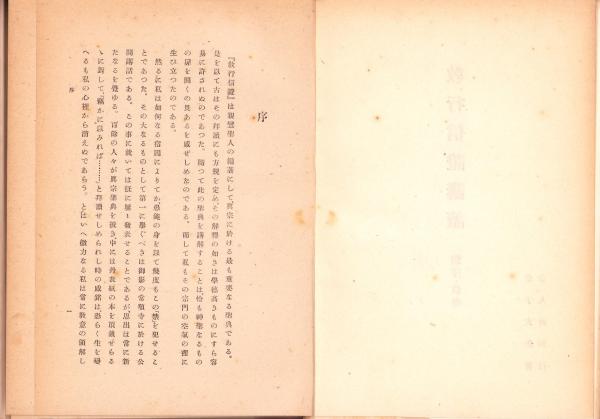 序
『教行信證』は親鸞聖人の編著にして眞宗に於ける最も重要なる聖典である。
是を以て古はその拜讀にも方規を定め、その解釋の如きは學德高きものにすら容
易に許されぬのであつた。隨つて此の聖典を講解することは、恰も神聖なるもの
の扉を開くの畏あるを感ぜしめるのである。而して私もその宗門の空氣の裡に
生ひ立つたのである。
然るに私は如何なる宿因によりてか愚鈍の身を以て幾度もこの禁を犯せるこ
とであつた。その大なるものとして第一に擧ぐべきは御影の常順寺に於ける公
開講話である。この事に就いては既に屢〻發表せることであるが、思出は常に新
たなるを覺ゆる。百餘の人々が眞宗聖典を披き、中には丹表紙の本を頂戴せらる
ゝに對して、「竊かに以みれば………」と拜讀せしめられし時の感銘は恐らく生を
へるも私の心裡から消えぬであらう。とはいへ微力なる私は常に敎意の領解し
序
一
教行信證講讀